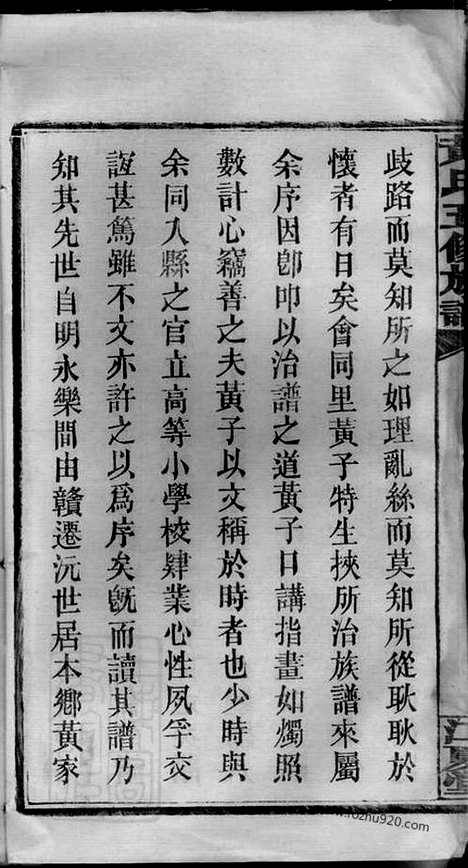 黃氏五修族譜
江夏堂
歧路而莫知所之如理亂絲而莫知所從耿耿於
懷者有日矣會同里黃子特生挾所治族譜來屬
余序因卽叩以治譜之道黃子口講指畫如燭照
數計心竊善之夫黃子以文稱於時者也少時與
余同入縣之官立高等小學校肄業心性夙孚交
誼甚篤雖不文亦許之以爲序矣旣而讀其譜乃
知其先世自明永樂間由贛遷沅世居本鄉黃家
www.rozhu920.com